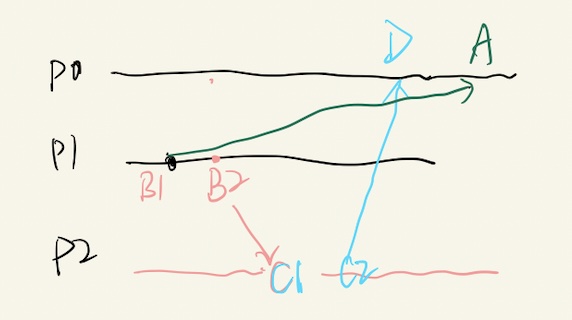 D A
P0
P1
B1 B2
P2
C1 C2